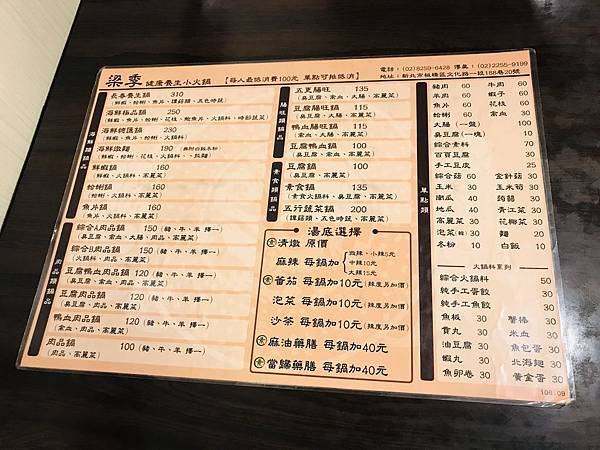 梁季 健康養生小火鍋 【每人最低消費100元 單點可抵低消】
電話：(02)8259-6428 傳真：(02)2255-9199
地址：新北市板橋區文化路一段188巷20號
海鮮類鍋品
長春養生鍋 310
海鮮極品鍋 250
海鮮總匯鍋 230
海鮮燉麵 190
鮮蝦鍋 160
(鮮蝦、火鍋料、高麗菜)
蛤蜊鍋 160
(蛤蜊、火鍋料、高麗菜)
魚片鍋 160
(魚片、火鍋料、高麗菜)
肉品類鍋品
綜合A肉品鍋 150 (豬、牛、羊 擇一)
(臭豆腐、米血、大腸、高麗菜)
綜合B肉品鍋 150 (豬、牛、羊 擇一)
豆腐鴨血肉品鍋 120 (豬、牛、羊 擇一)
(臭豆腐、米血、肉品、高麗菜)
豆腐肉品鍋 120 (豬、牛、羊 擇一)
(臭豆腐、肉品、高麗菜)
鴨血肉品鍋 120 (豬、牛、羊 擇一)
(米血、肉品、高麗菜)
肉品鍋 100 (豬、牛、羊 擇一)
(肉品、高麗菜)
腸旺類鍋品
五更腸旺 135
(臭豆腐、米血、大腸、高麗菜)
豆腐腸旺鍋 115
(臭豆腐、大腸、高麗菜)
鴨血腸旺鍋 115
(米血、大腸、高麗菜)
豆腐鴨血鍋 100
(臭豆腐、米血、高麗菜)
素食類鍋品
豆腐鍋 100
(臭豆腐、高麗菜)
素食鍋 135
(素食火鍋料、臭豆腐、高麗菜)
五行蔬菜鍋 200
湯底選擇
素 清燉 原價
麻辣 每鍋加 微辣、小辣5元
中辣10元
大辣15元
素 番茄 每鍋加10元(辣度另加價)
泡菜 每鍋加10元(辣度另加價)
沙茶 每鍋加10元(辣度另加價)
素 麻油藥膳 每鍋加40元
素 當歸藥膳 每鍋加40元
單點類
豬肉 60 牛肉 60
羊肉 60 蝦子 60
魚片 60 花枝 60
蛤蜊 60 米血 30
大腸（一盤） 100
臭豆腐(一塊) 10
綜合素料 70
百頁豆腐 30
手工豆皮 25
綜合菇 60 金針菇 30
玉米 30 玉米筍 30
南瓜 40 蒟蒻 30
地瓜 40 青江菜 30
高麗菜 30 花椰菜 30
泡菜 30 麵 20
冬粉 10 白飯 10
火鍋料系列
綜合火鍋料 50
純手工魚餃 30
純手工燕餃 30
魚板 30 蟹棒 30
貢丸 30 米血 30
油豆腐 30 魚包蛋 30
蝦丸 30 北海翅 30
魚卵卷 30 黃金蛋 30
106.09